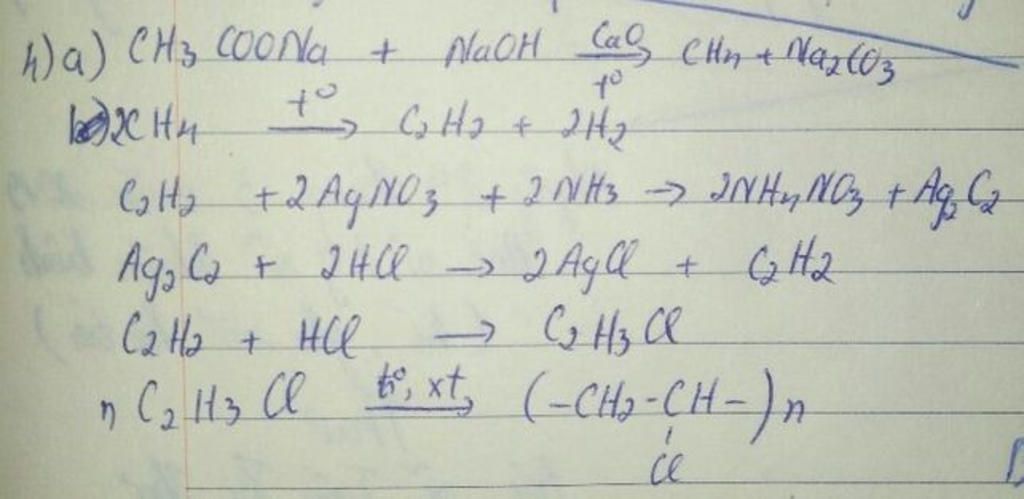 4) a) CH3COONa + NaOH CaO→t° CH4 + Na2CO3
2CH4 t°→ C2H2 + 2H2
C2H2 + 2AgNO3 + 2NH3 → 2NH4NO3 + Ag2C2
Ag2C2 + 2HCl → 2AgCl + C2H2
C2H2 + HCl → C2H3Cl
n C2H3Cl t°, xt→ (-CH2-CH-)n
Cl